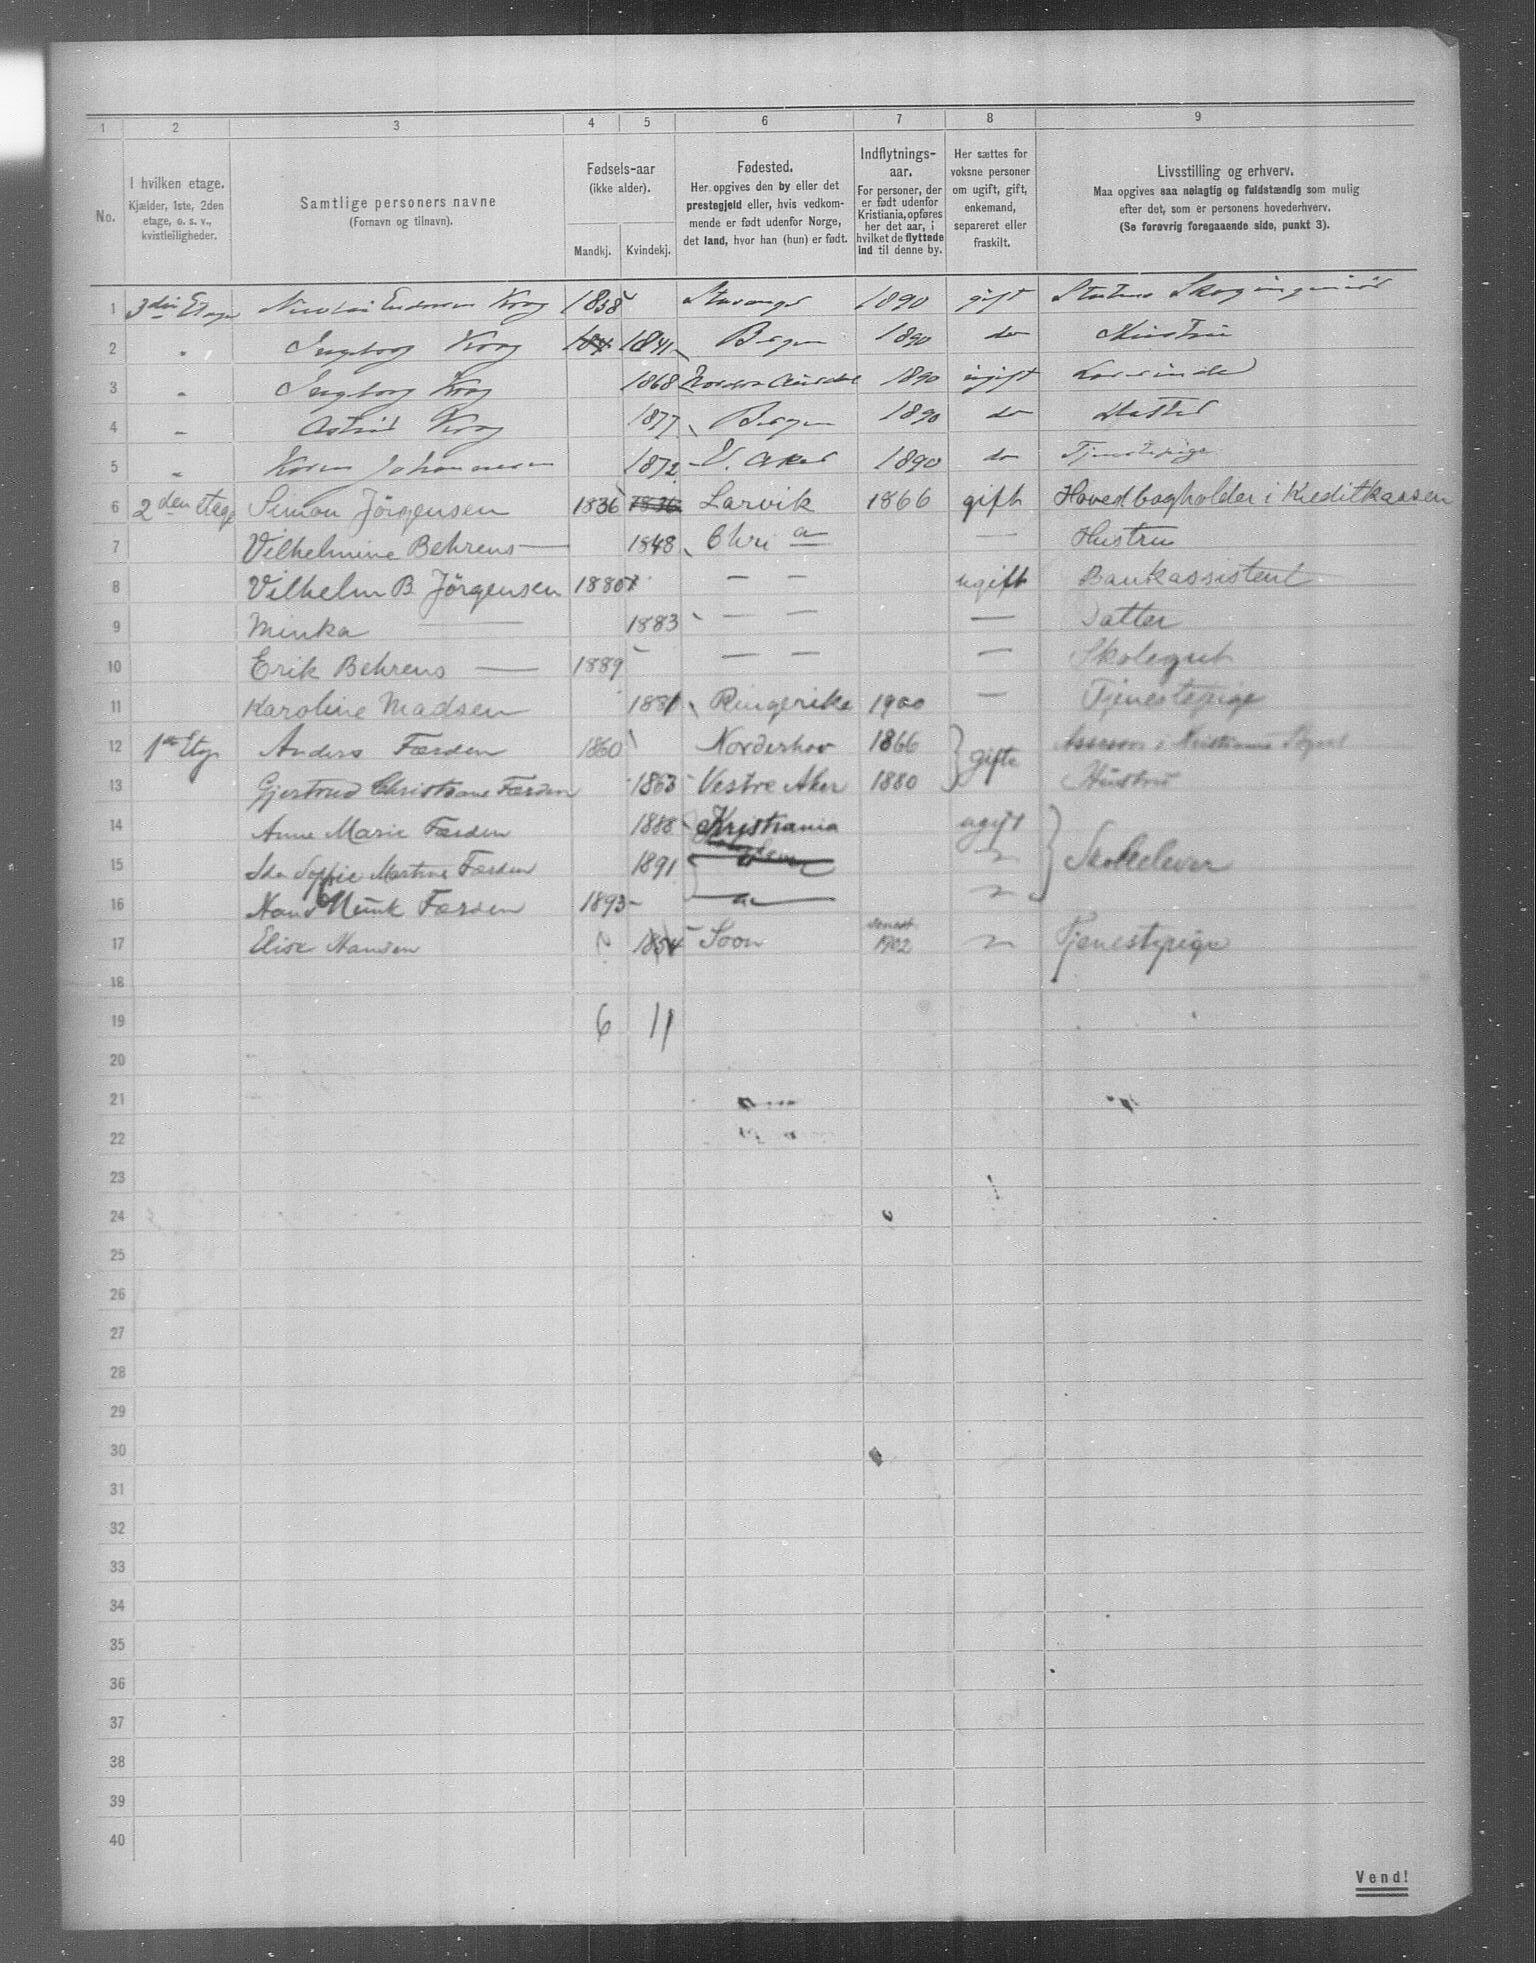 1 2 3 4 5 6 7 8 9
No.
I hvilken etage.
Kjælder, 1ste, 2den
etage, o. s. v.,
kvistleiligheder.
Samtlige personers navne
(Fornavn og tilnavn).
Fødsels-aar
(ikke alder).
Mandkj. Kvindekj.
Fødested.
Her opgives den by eller det
prestegjeld eller, hvis vedkom-
mende er født udenfor Norge,
det land, hvor han (hun) er født.
Indflytnings-
aar.
For personer, der
er født udenfor
Kristiania, opføres
her det aar, i
hvilket de flyttede
ind til denne by.
Her sættes for
voksne personer
om ugift, gift,
enkemand,
separeret eller
fraskilt.
Livsstilling og erhverv.
Maa opgives saa nøiagtig og fuldstændig som mulig
efter det, som er personens hovederhverv.
(Se forøvrig foregaaende side, punkt 3).
1 3die Etage Krag Stavanger 1890 gift Statens Skogingeniør
2 " Ingeborg Krag 1841 Bergen 1890 do Hustru
3 " Ingeborg Krag 1868 1890 ugift
4 " Astrid Krag 1877 Bergen 1890 do Datter
5 " Karen Johannesen 1872 V. Aker 1890 do Tjenestepige
6 2den Etage Simon Jörgensen 1836 1836 Larvik 1866 gift Hovedbogholder i Kreditkassen
7 Vilhelmine Behrens — 1848 Chria — Hustru
8 Vilhelm B Jörgensen 1880 — — ugift Bankassistent
9 Minka — 1883 — — — Datter
10 Erik Behrens — 1889 — — — Skolegut
11 Karoline Madsen 1881 Ringerike 1900 — Tjenestepige
12 1ste Etg Anders Færden 1860 Norderhov 1866 gifte Assessor i Kristiania
13 Gjertrud Christiane Færden 1863 Vestre Aker 1880 Hustru
14 Anne Marie Færden 1888 Kristiania ugift
15 Ida Sofie Martine Færden 1891 " Skoleelever
16 Hans Munk Færden 1893 — "
17 Elise Hansen ? 1854 Soon senest 1902 " Tjenestepige
18
19 6 11
20
21
22
23
24
25
26
27
28
29
30
31
32
33
34
35
36
37
38
39
40
Vend!